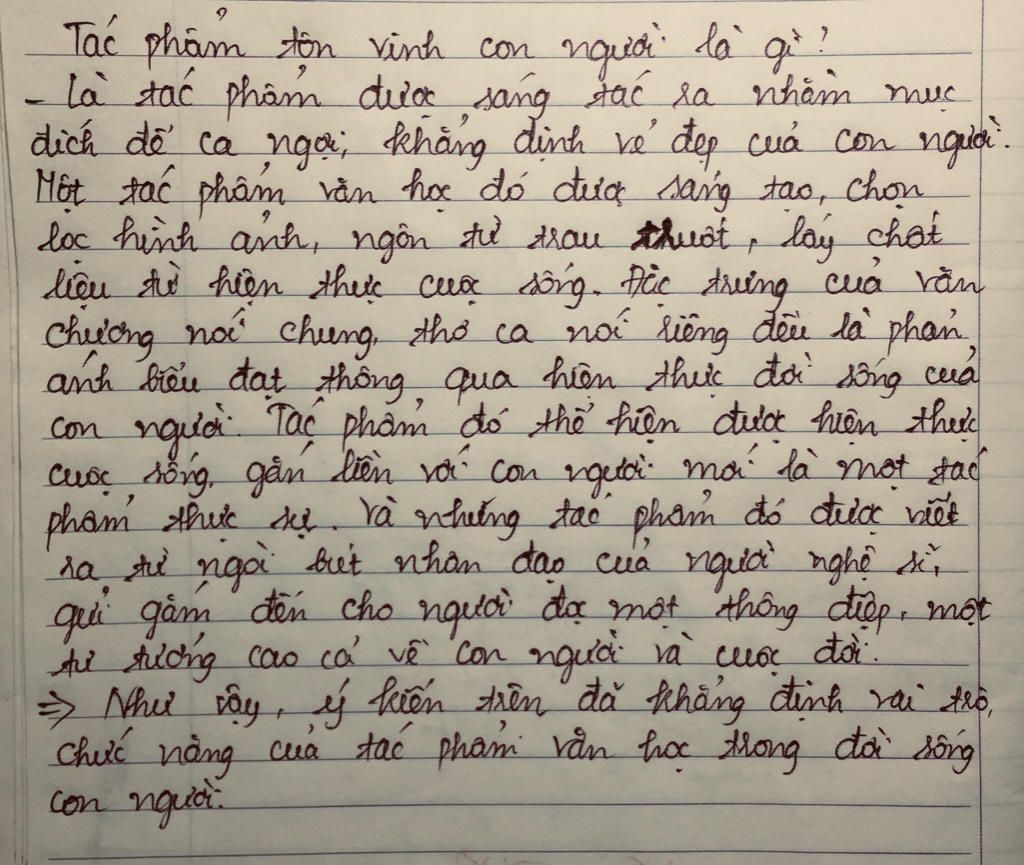 Tác phẩm tôn vinh con người là gì?
- Là tác phẩm được sáng tác ra nhằm mục
đích để ca ngợi, khẳng định vẻ đẹp của con người.
Một tác phẩm văn học đó được sáng tạo, chọn
lọc hình ảnh, ngôn từ trau chuốt, lấy chất
liệu từ hiện thực cuộc sống. Đặc trưng của văn
chương nói chung, thơ ca nói riêng đều là phản
ánh biểu đạt thông qua hiện thực đời sống của
con người. Tác phẩm đó thể hiện được hiện thực
cuộc sống, gắn liền với con người mới là một tác
phẩm thực sự. Và những tác phẩm đó được viết
ra từ ngòi bút nhân đạo của người nghệ sĩ,
gửi gắm đến cho người đọ một thông điệp, một
tư tưởng cao cả về con người và cuộc đời.
⇒ Như vậy, ý kiến trên đã khẳng định vai trò,
chức năng của tác phẩm văn học trong đời sống
con người.